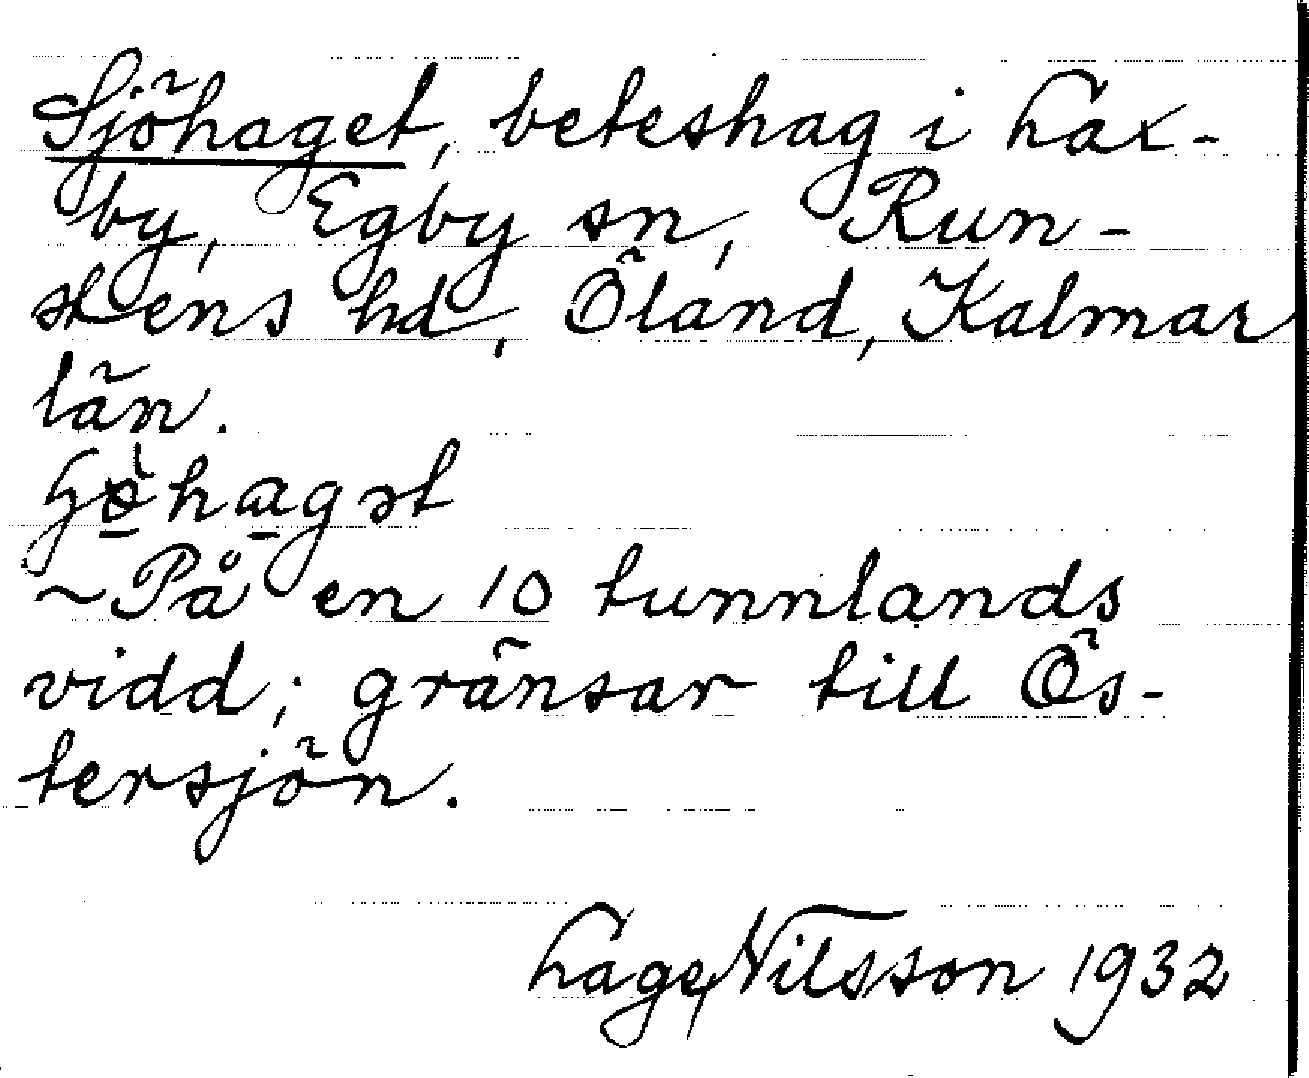 Sjöhaget, beteshag i Lax-
by, Egby sn, Run-
stens hd, Öland, Kalmar
län.
~På en 10 tunnlands
vidd; gränsar till Ös-
tersjön.
Lage Nilsson 1932